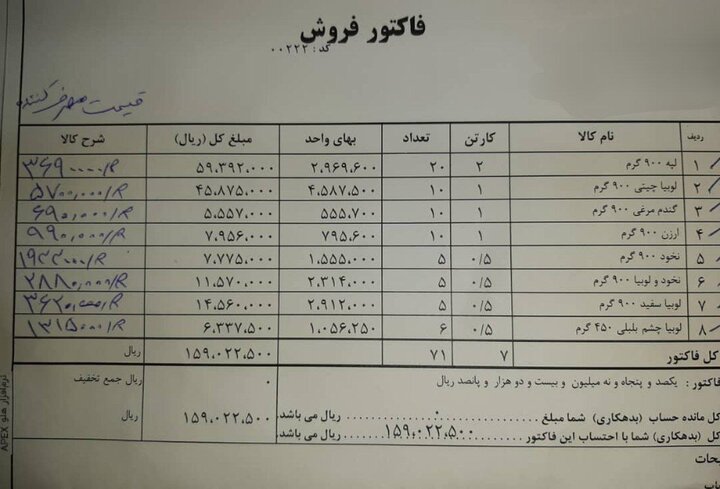 فاکتور فروش
کد: ۰۰۲۲۲
قیمت مصرف کننده
ردیف نام کالا کارتن تعداد بهای واحد مبلغ کل (ریال) شرح کالا
۱ لپه ۹۰۰ گرم ۲ ۲۰ ۲.۹۶۹.۶۰۰ ۵۹.۳۹۲.۰۰۰
۲ لوبیا چیتی ۹۰۰ گرم ۱ ۱۰ ۴.۵۸۷.۵۰۰ ۴۵.۸۷۵.۰۰۰ ۵۷۰۰,۰۰۰/R
۳ گندم مرغی ۹۰۰ گرم ۱ ۱۰ ۵۵۵.۷۰۰ ۵.۵۵۷.۰۰۰ ۶۹۰,۰۰۰/R
۴ ارزن ۹۰۰ گرم ۱ ۱۰ ۷۹۵.۶۰۰ ۷.۹۵۶.۰۰۰ ۹۹۰,۰۰۰/R
۵ نخود ۹۰۰ گرم ۰/۵ ۵ ۱.۵۵۵.۰۰۰ ۷.۷۷۵.۰۰۰
۶ نخود و لوبیا ۹۰۰ گرم ۰/۵ ۵ ۲.۳۱۴.۰۰۰ ۱۱.۵۷۰.۰۰۰ ۲۸۸۰,۰۰۰/R
۷ لوبیا سفید ۹۰۰ گرم ۰/۵ ۵ ۲.۹۱۲.۰۰۰ ۱۴.۵۶۰.۰۰۰ ۳۶۲۰,۰۰۰/R
۸ لوبیا چشم بلبلی ۴۵۰ گرم ۰/۵ ۶ ۱.۰۵۶.۲۵۰ ۶.۳۳۷.۵۰۰ ۱۳۱۵۰۰۰/R
کل فاکتور ۷ ۷۱ ۱۵۹.۰۲۲.۵۰۰ ریال
فاکتور : یکصد و پنجاه و نه میلیون و بیست و دو هزار و پانصد ریال ۰ ریال جمع تخفیف
کل مانده حساب (بدهکاری) شما مبلغ ۰ ریال می باشد. ۱۵۹.۰۲۲.۵۰۰ ریال
کل (بدهکاری) شما با احتساب این فاکتور ۱۵۹.۰۲۲.۵۰۰ ریال می باشد.
نرم‌افزار هلو APEX